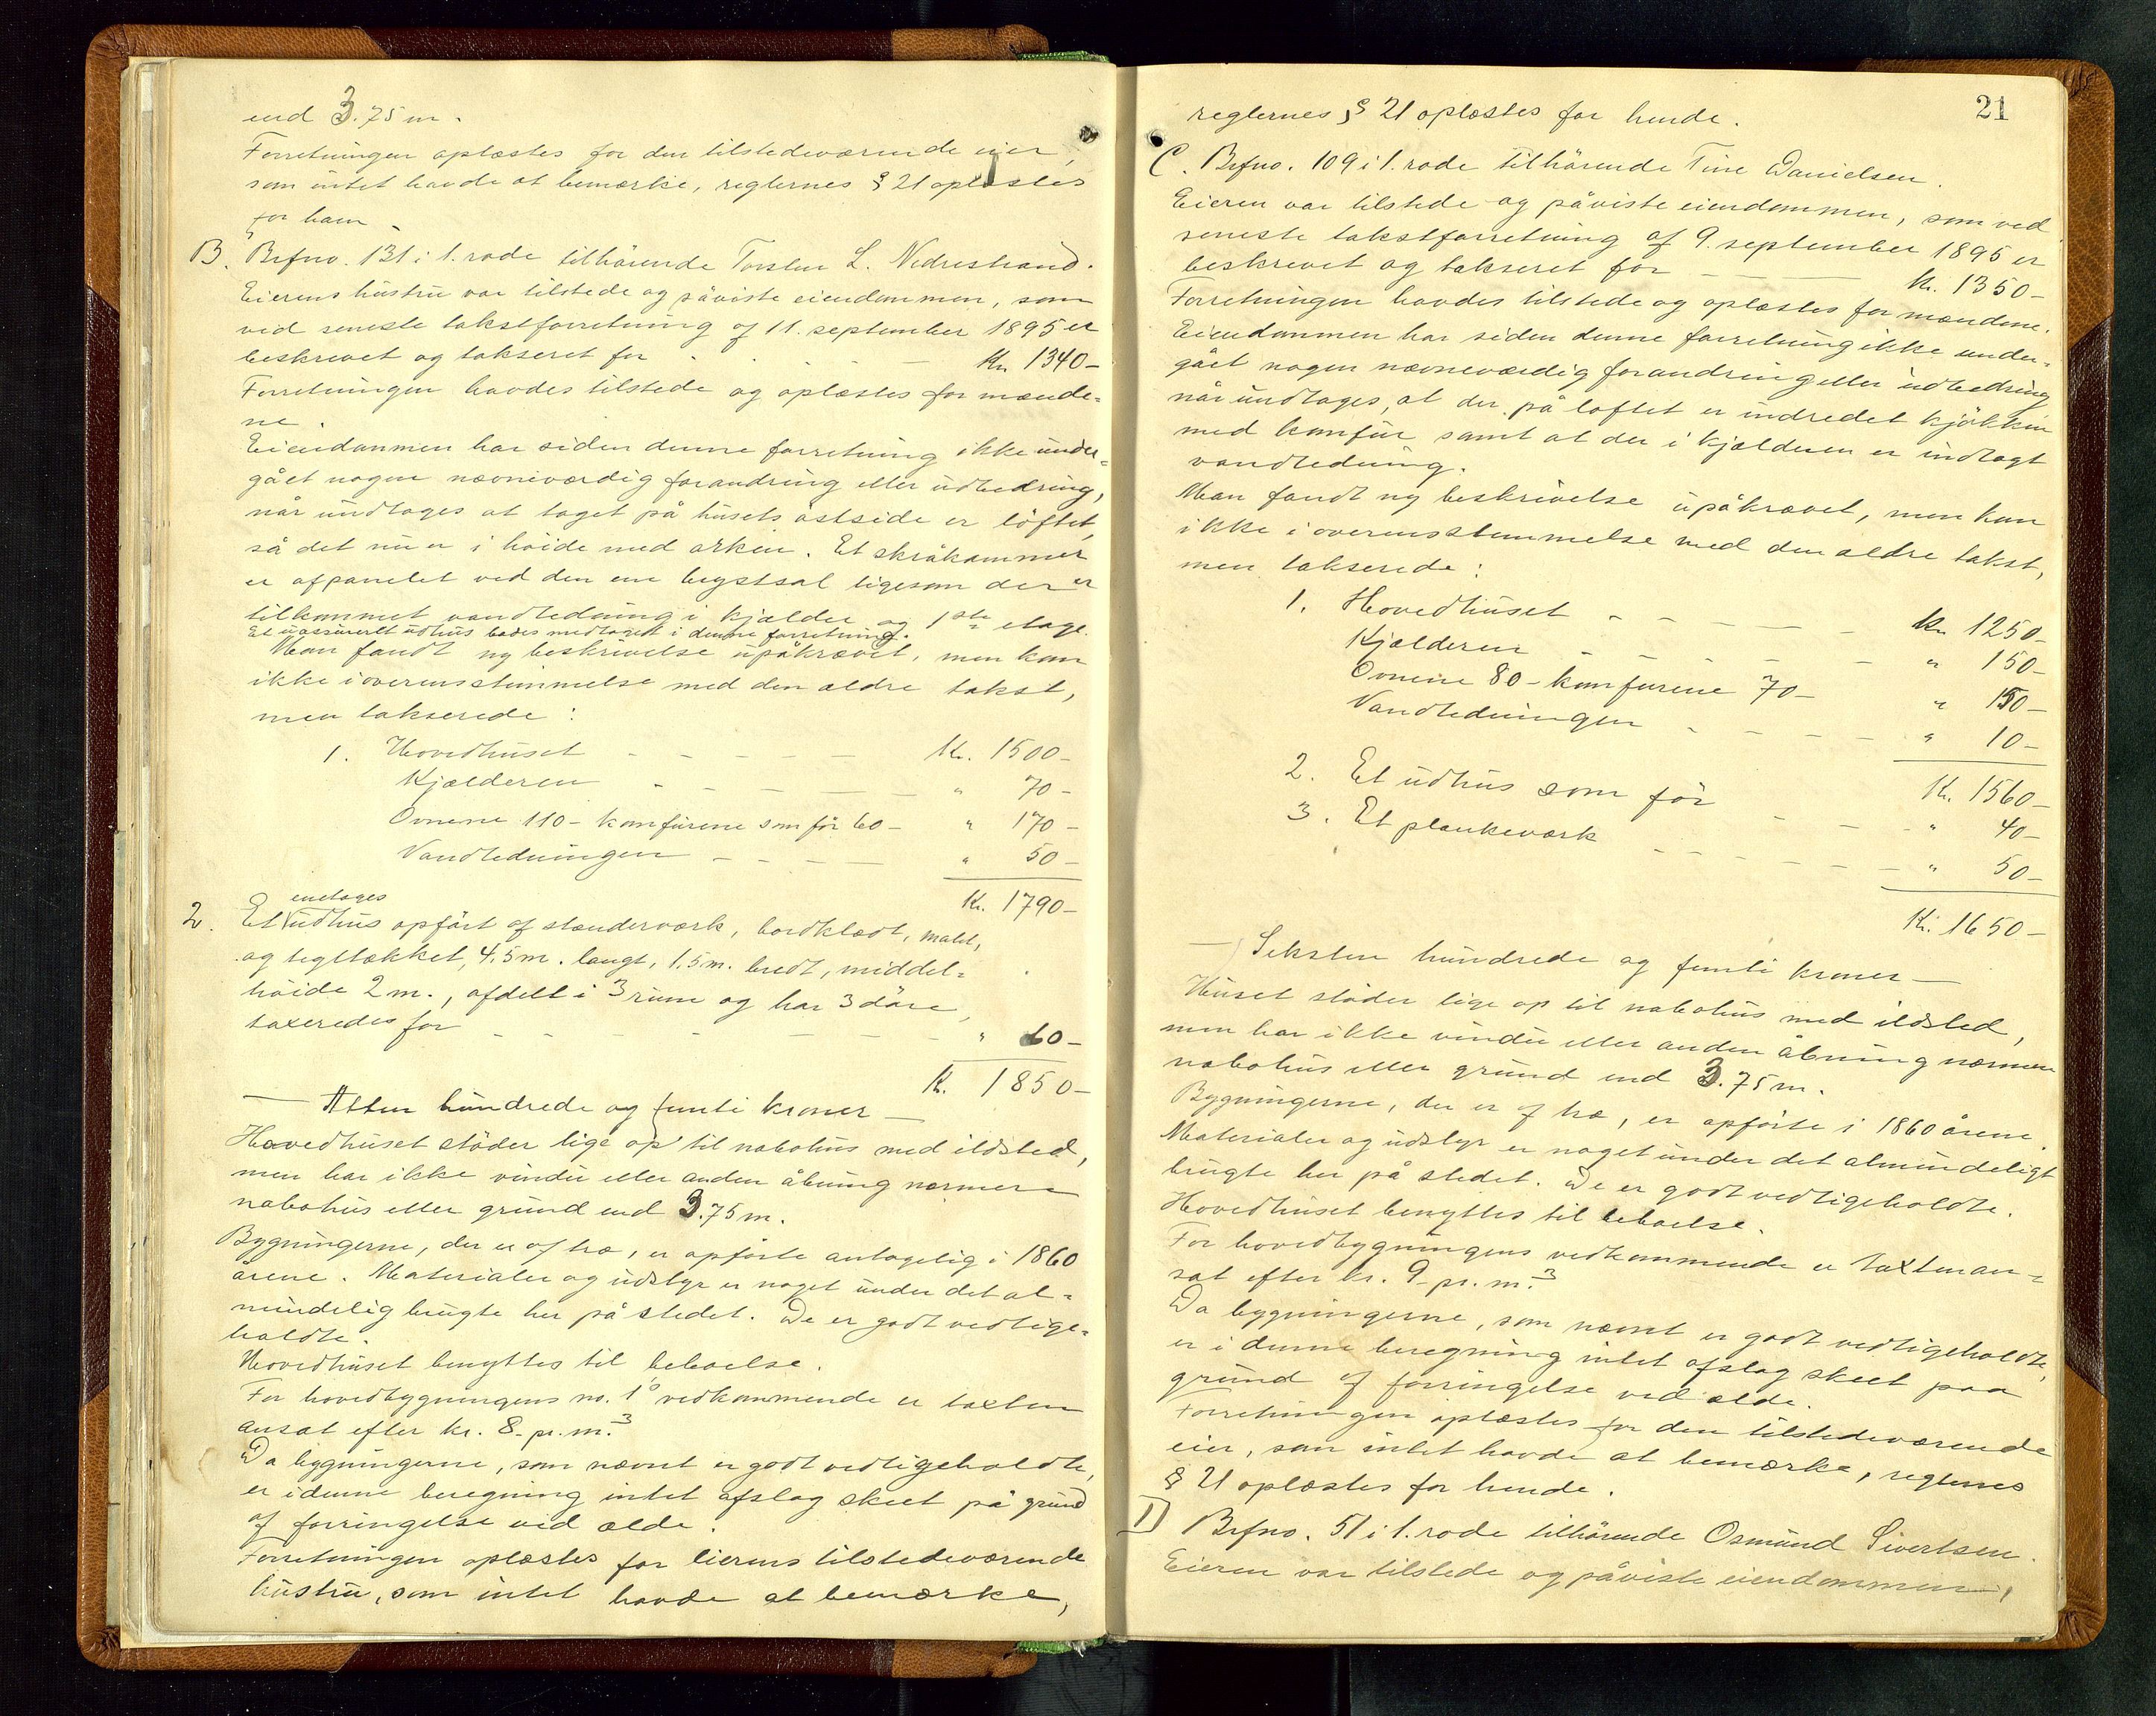 end 3.75 m.
Forretningen oplæstes for den tilstedeværende eier,
som intet havde at bemærke, reglernes § 21 oplæstes
for ham.
B. Brfno. 131 i 1. rode tilhörende Torsten L. Nedrestrand.
Eierens hustru var tilstede og påviste eiendommen, som
ved seneste takstforretning af 11. september 1895 er
beskrevet og takseret for - - - Kr. 1340-
Forretningen havdes tilstede og oplæstes for mænde=
ne.
Eiendommen har siden denne forretning ikke under=
gået nogen nævneværdig forandring eller udbedring,
når undtages at taget på husets östside er löftet,
så det nu er i höide med arken. Et skråkammer
er afpanelet ved den ene brystsal ligesom der er
tilkommet vandledning i kjælder og 1ste etage.
Et uassureret udhus bades medtaget i denne forretning.
Man fandt ny beskrivelse upåkrævet, men kan
ikke i overensstemmelse med den ældre takst,
men takserede:
1. Hovedhuset - - - - - Kr. 1500-
Kjælderen - - - - - " 70-
Ovnene 110- komfurene som för 60- " 170-
Vandledningen - - - - " 50-
Kr. 1790-
enetages
2. Et udhus opfört af stænderværk, bordklædt, malt,
og tegltækket, 4,5 m. langt, 1,5 m. bredt, middel=
höide 2 m., afdelt i 3 rum og har 3 döre,
taxeredes for - - - - - " 60-
Kr. 1850-
— Atten hundrede og femti kroner —
Hovedhuset stöder lige op til nabohus med ildsted,
men har ikke vindu eller anden åbning nærmere
nabohus eller grund end 3.75 m.
Bygningerne, der er af træ, er opförte antagelig i 1860
årene. Materialer og udstyr er noget under det al=
mindelig brugte her på stedet. De er godt vedlige=
holdte.
Hovedhuset benyttes til beboelse.
For hovedbygningens no. 1 vedkommende er taxten
ansat efter kr. 8- pr. m.3
Da bygningerne, som nævnt er godt vedligeholdte,
er i denne beregning intet afslag skeet på grund
af forringelse ved ælde.
Forretningen oplæstes for eierens tilstedeværende
hustru, som intet havde at bemærke,
21
reglernes § 21 oplæstes for hende.
C. Brfno. 109 i 1. rode tilhörende Tine Danielsen.
Eieren var tilstede og påviste eiendommen, som ved
seneste takstforretning af 9. september 1895 er
beskrevet og takseret for — — Kr. 1350-
Forretningen havdes tilstede og oplæstes for mændene.
Eiendommen har siden denne forretning ikke under=
gået nogen nævneværdig forandring eller udbedring
når undtages, at der på loftet er indredet kjökken
med komfur samt at der i kjælderen er indlagt
vandledning.
Man fandt ny beskrivelse upåkrævet, men kan
ikke i overensstemmelse med den ældre takst,
men takserede:
1. Hovedhuset - - - - - Kr. 1250-
Kjælderen - - - - - " 150-
Ovnene 80- komfurene 70- " 150-
Vandledningen - - - - " 10-
Kr. 1560-
2. Et udhus som för - - - " 40-
3. Et plankeværk - - - - - " 50-
Kr. 1650-
— Seksten hundrede og femti kroner —
Huset stöder lige op til nabohus med ildsted,
men har ikke vindu eller anden åbning nærmere
nabohus eller grund end 3.75 m.
Bygningerne, der er af træ, er opförte i 1860 årene.
Materialer og udstyr er noget under det almindeligt
brugte her på stedet. De er godt vedligeholdte.
Hovedhuset benyttes til beboelse.
For hovedbygningens vedkommende er taxten an=
sat efter kr. 9- pr. m.3
Da bygningerne, som nævnt er godt vedligeholdte,
er i denne beregning intet afslag skeet paa
grund af forringelse ved ælde.
Forretningen oplæstes for den tilstedeværende
eier, som intet havde at bemærke, reglernes
§ 21 oplæstes for hende.
D Brfno. 51 i 1. rode tilhörende Osmund Sivertsen.
Eieren var tilstede og påviste eiendommen,